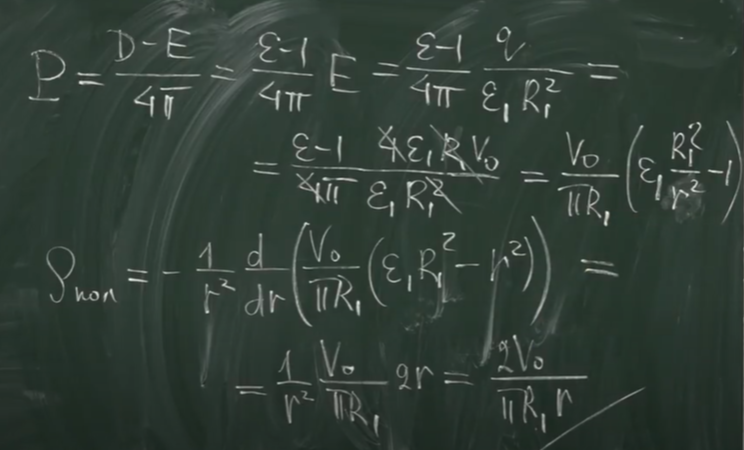 P = \frac{D-E}{4\pi} = \frac{ε-1}{4\pi} E = \frac{ε-1}{4\pi} \frac{q}{ε_1 R_1^2} =
= \frac{ε-1}{4\pi} \frac{4 ε_1 R_1 V_0}{ε_1 R_1^2} = \frac{V_0}{\pi R_1} \left( ε_1 \frac{R_1^2}{r^2} - 1 \right)
ρ_{пол} = - \frac{1}{r^2} \frac{d}{dr} \left( \frac{V_0}{\pi R_1} \left( ε_1 R_1^2 - r^2 \right) \right) =
= \frac{1}{r^2} \frac{V_0}{\pi R_1} 2r = \frac{2V_0}{\pi R_1 r}